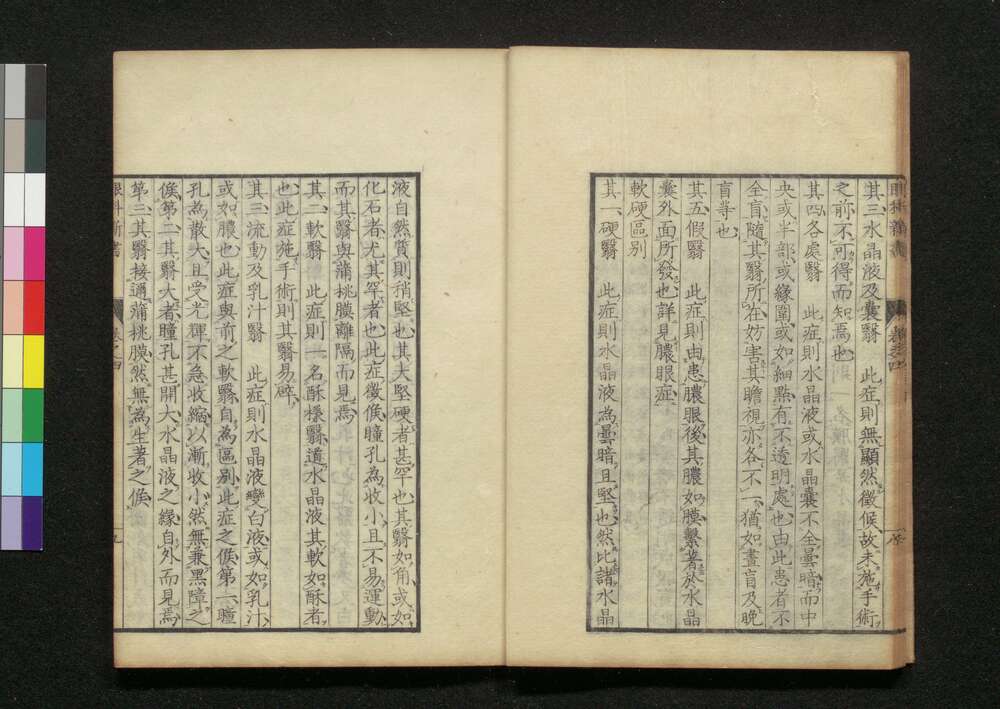 眼科新書
其三水晶液及囊翳　此症則無顯然徵候故未施手術
之前不可得而知焉也
其四各處翳　此症則水晶液或水晶囊不全曇暗而中
央或半部或緣圍或如細點有不透明處也由此患者不
全盲隨其翳所在妨害其瞻視亦各不一猶如晝盲及晚
盲等也
其五假翳　此症則由患膿眼後其膿如膜繫著於水晶
囊外面所發也詳見膿眼症
軟硬區別
其一硬翳　此症則水晶液為曇暗且堅也然比諸水晶
液自然質則稍堅也其大堅硬者甚罕也其翳如角或如
化石者尤其罕者也此症徵候瞳孔為收小且不易運動
而其翳與蒲桃膜離隔而見焉
其二軟翳　此症則一名酥樣翳道水晶液其軟如酥者
也此症施手術則其翳易碎
其三流動及乳汁翳　此症則水晶液變白液或如乳汁
或如膿也此症與前之軟翳自為區別此症之候第一瞳
孔為散大且受光輝不急收縮以漸收小然無兼黑障之
候第二其翳大者瞳孔甚開大水晶液之緣自外而見焉
第三其翳接邇蒲桃膜然無為生著之候
眼科新書
卷之四
五